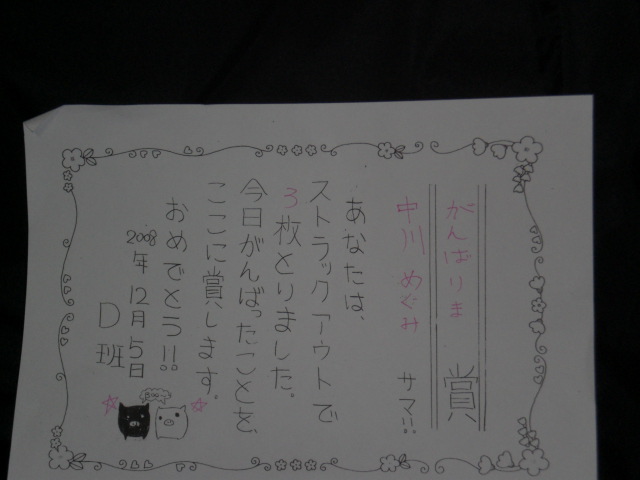 がんばりま 賞
中川 めぐみ サマ!!
あなたは、
ストラックアウトで
3枚とりました。
今日がんばったことを、
ここに賞します。
おめでとう!!
2008年 12月 5日
D 班